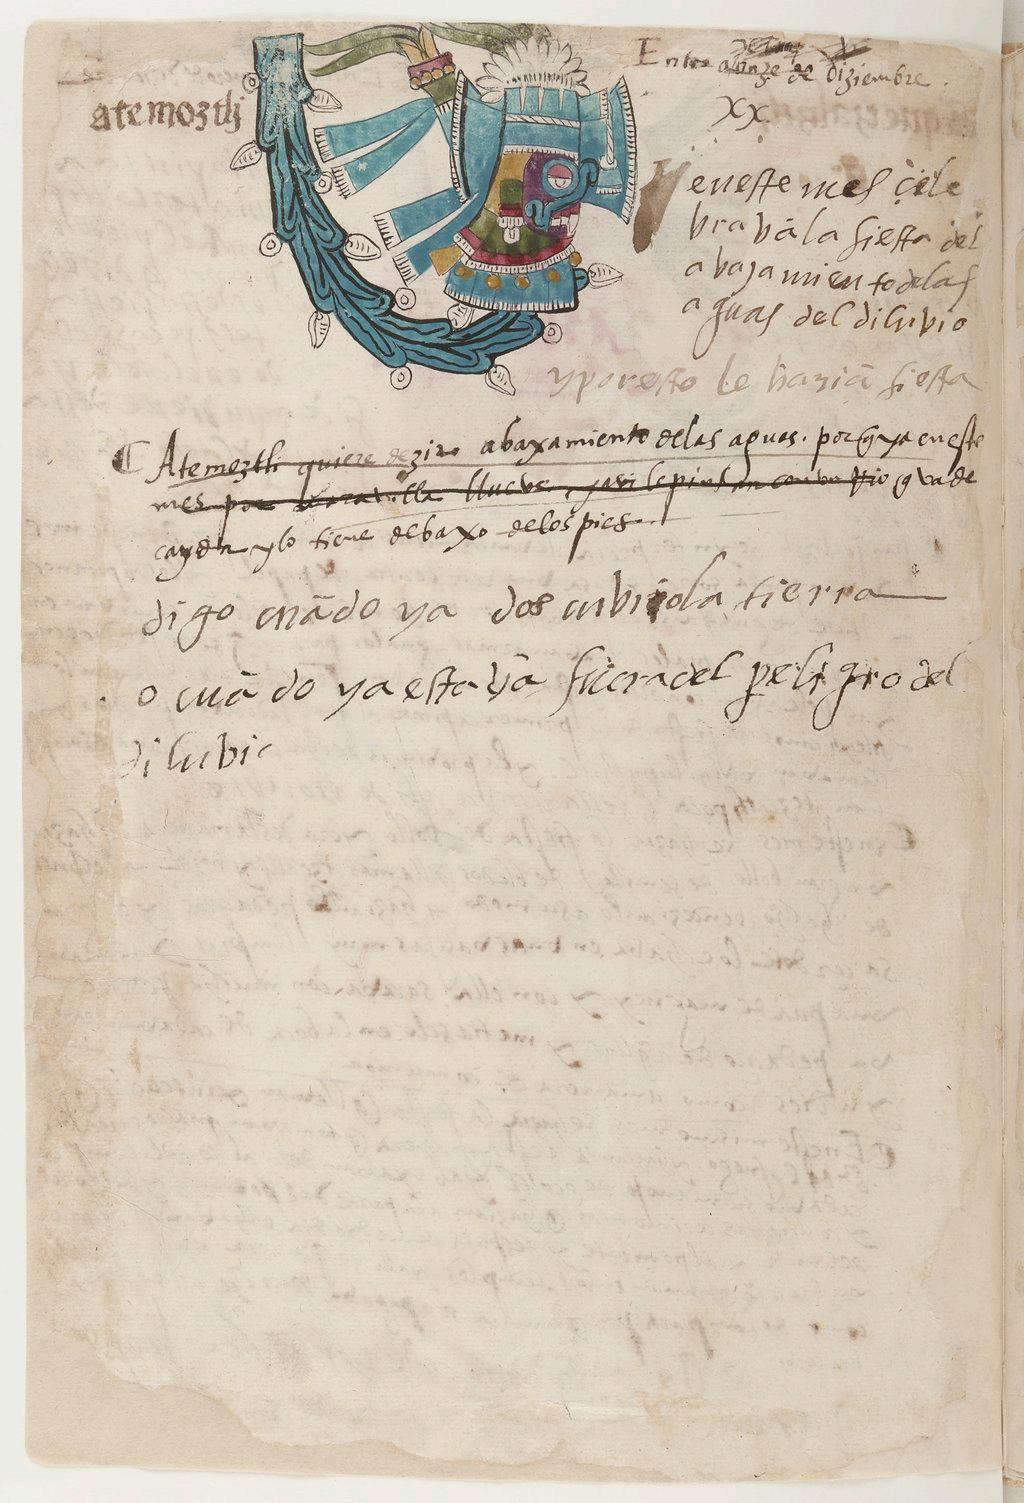 atemoztli
Entra a onze de diziembre
XX
en este mes çele
bravā la fiesta del
abajamiento de las
aguas del dilubio
y por esto le haziā fiesta
Atemoztli quiere dezir abaxamiento delas aguas. porq̄ ya en este
mes por maravilla llueve y asi le pintan con un rio q̄ va de
cayda y lo tiene debaxo de los pies.
digo cuādo ya dos cubrio la tierra
o cuādo ya estavā fuera del peligro del
dilubio